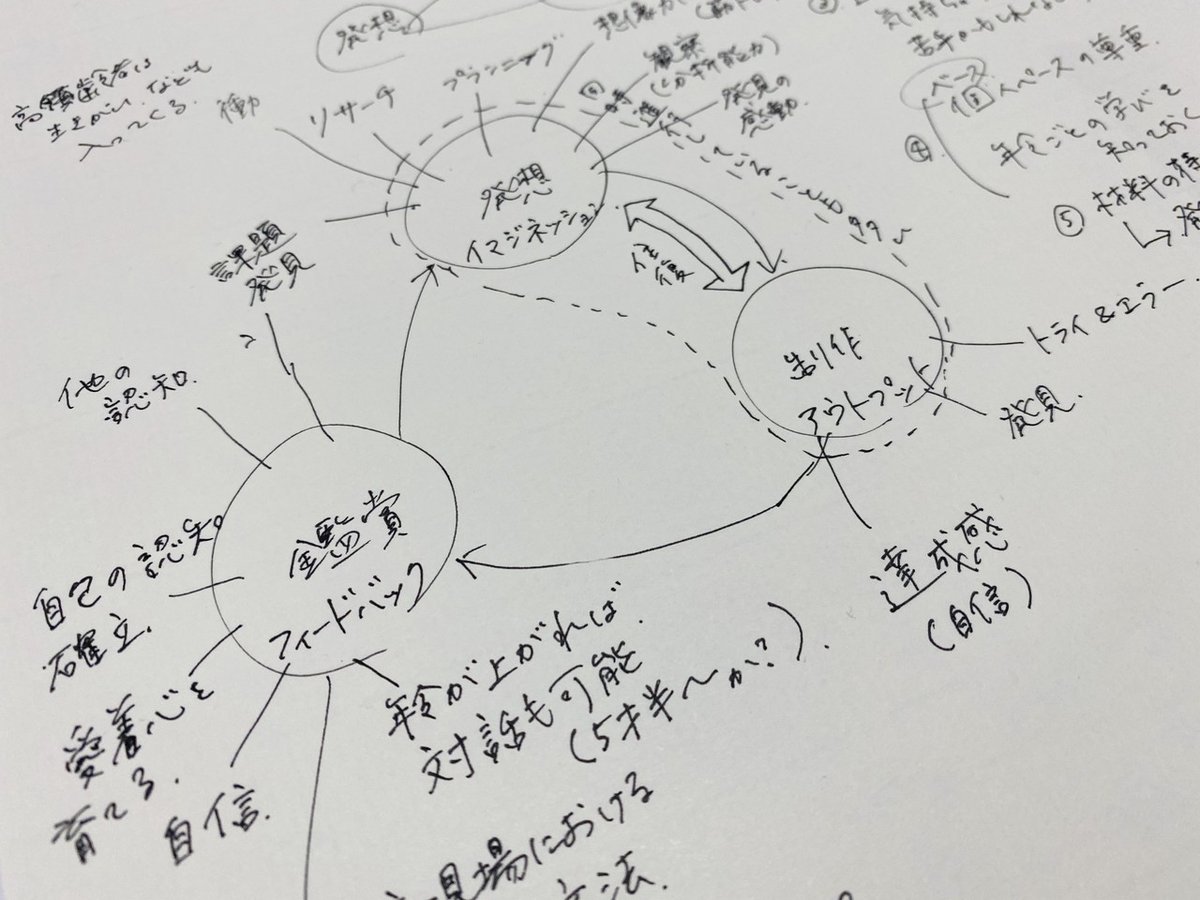 発想
高齢者は
生きがいなども
入ってくる.
衝
リサーチ
プランニング
観察
(分析能力)
発見の
感動.
気持ち
ベース
個人ペースの尊重.
④
年令ごとの学びを
知っておく
⑤ 材料の特
発想
イマジネーション
往復
課題
発見
他の
認知.
制作
アウトプット
トライ&エラー.
発見.
達成感
(自信)
鑑賞
フィードバック
自己の認知.
確立.
愛着心を
育てる.
自信.
年令が上がれば.
対話も可能
(5才半〜か?).
現場における
方法.